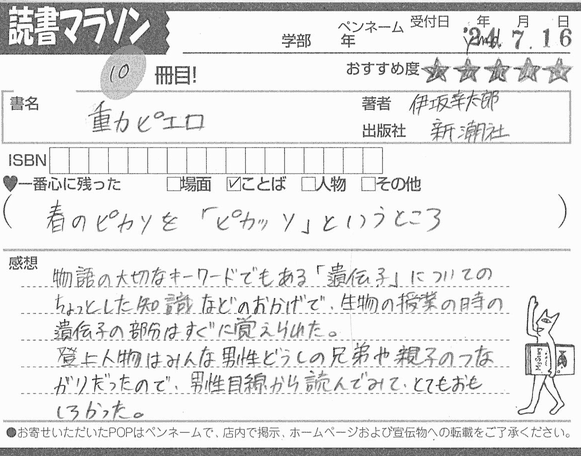 読書マラソン
学部 年 ペンネーム 受付日 年 月 日
'24.7.16
10 冊目!
おすすめ度 ★★★★★
書名 重力ピエロ
著者 伊坂幸太郎
出版社 新潮社
ISBN
♥一番心に残った □場面 ☑ことば □人物 □その他
(春のピカソを「ピカッソ」というところ)
感想
物語の大切なキーワードでもある「遺伝子」についての
ちょっとした知識などのおかげで、生物の授業の時の
遺伝子の部分はすぐに覚えられた。
登上人物はみんな男性どうしの兄弟や親子のつな
がりだったので、男性目線から読んでみて、とてもおも
しろかった。
●お寄せいただいたPOPはペンネームで、店内で掲示、ホームページおよび宣伝物への転載をご了承ください。